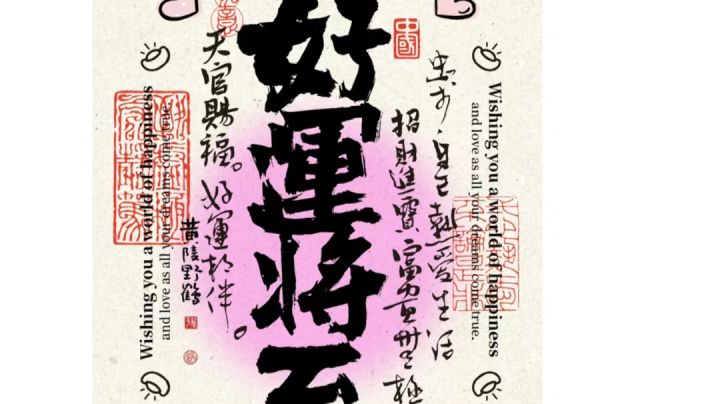 Wishing you a world of happiness
and love as all your dreams come true.
忠于自己熱愛生活
招財進寶富貴無極
中國
好運將至
天官賜福。好運相伴。
黄陵野鶴
Wishing you a world of happiness
and love as all your dreams come true.